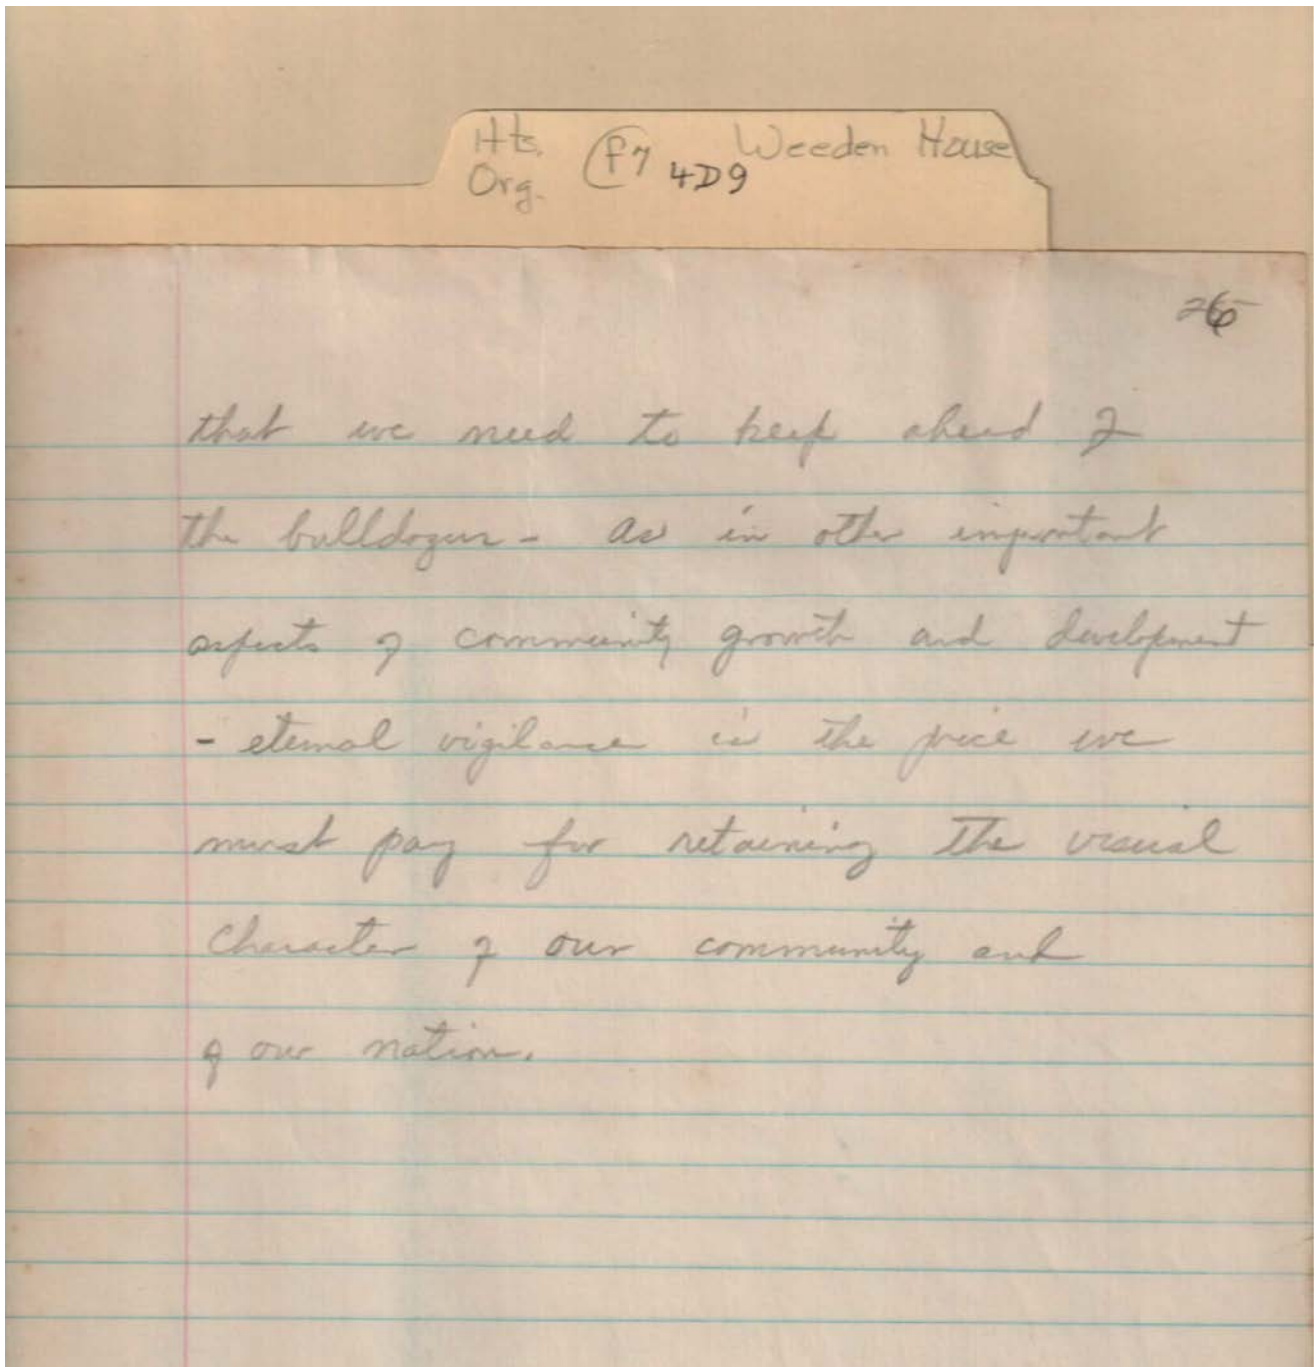 Hts. F7 4D9 Weeden House
Org.
that we need to keep ahead of
the bulldozers - as in other important
aspects of community growth and development
- eternal vigilance is the price we
must pay for retaining the visual
character of our community and
of our nation.